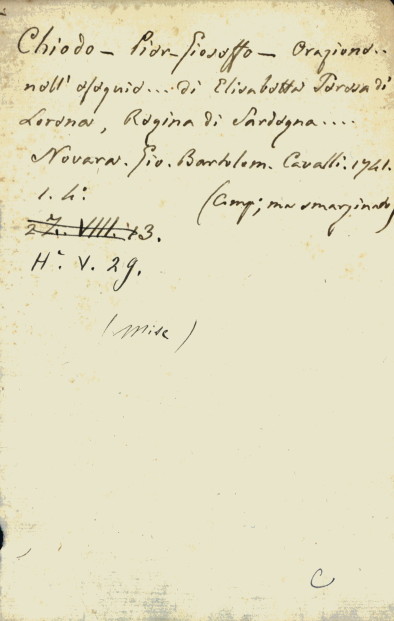 Chiodo - Pier-Giosoffo - Orazione..
nell' ossequie... di Elisabetta Teresa di
Lorena, Regina di Sardegna....
Novara. Gio. Bartolom. Cavalli. 1741.
1. 4°. (Comp; ma smarginato)
27. VIII. 13.
H^a. V. 29.
(Misc)
C